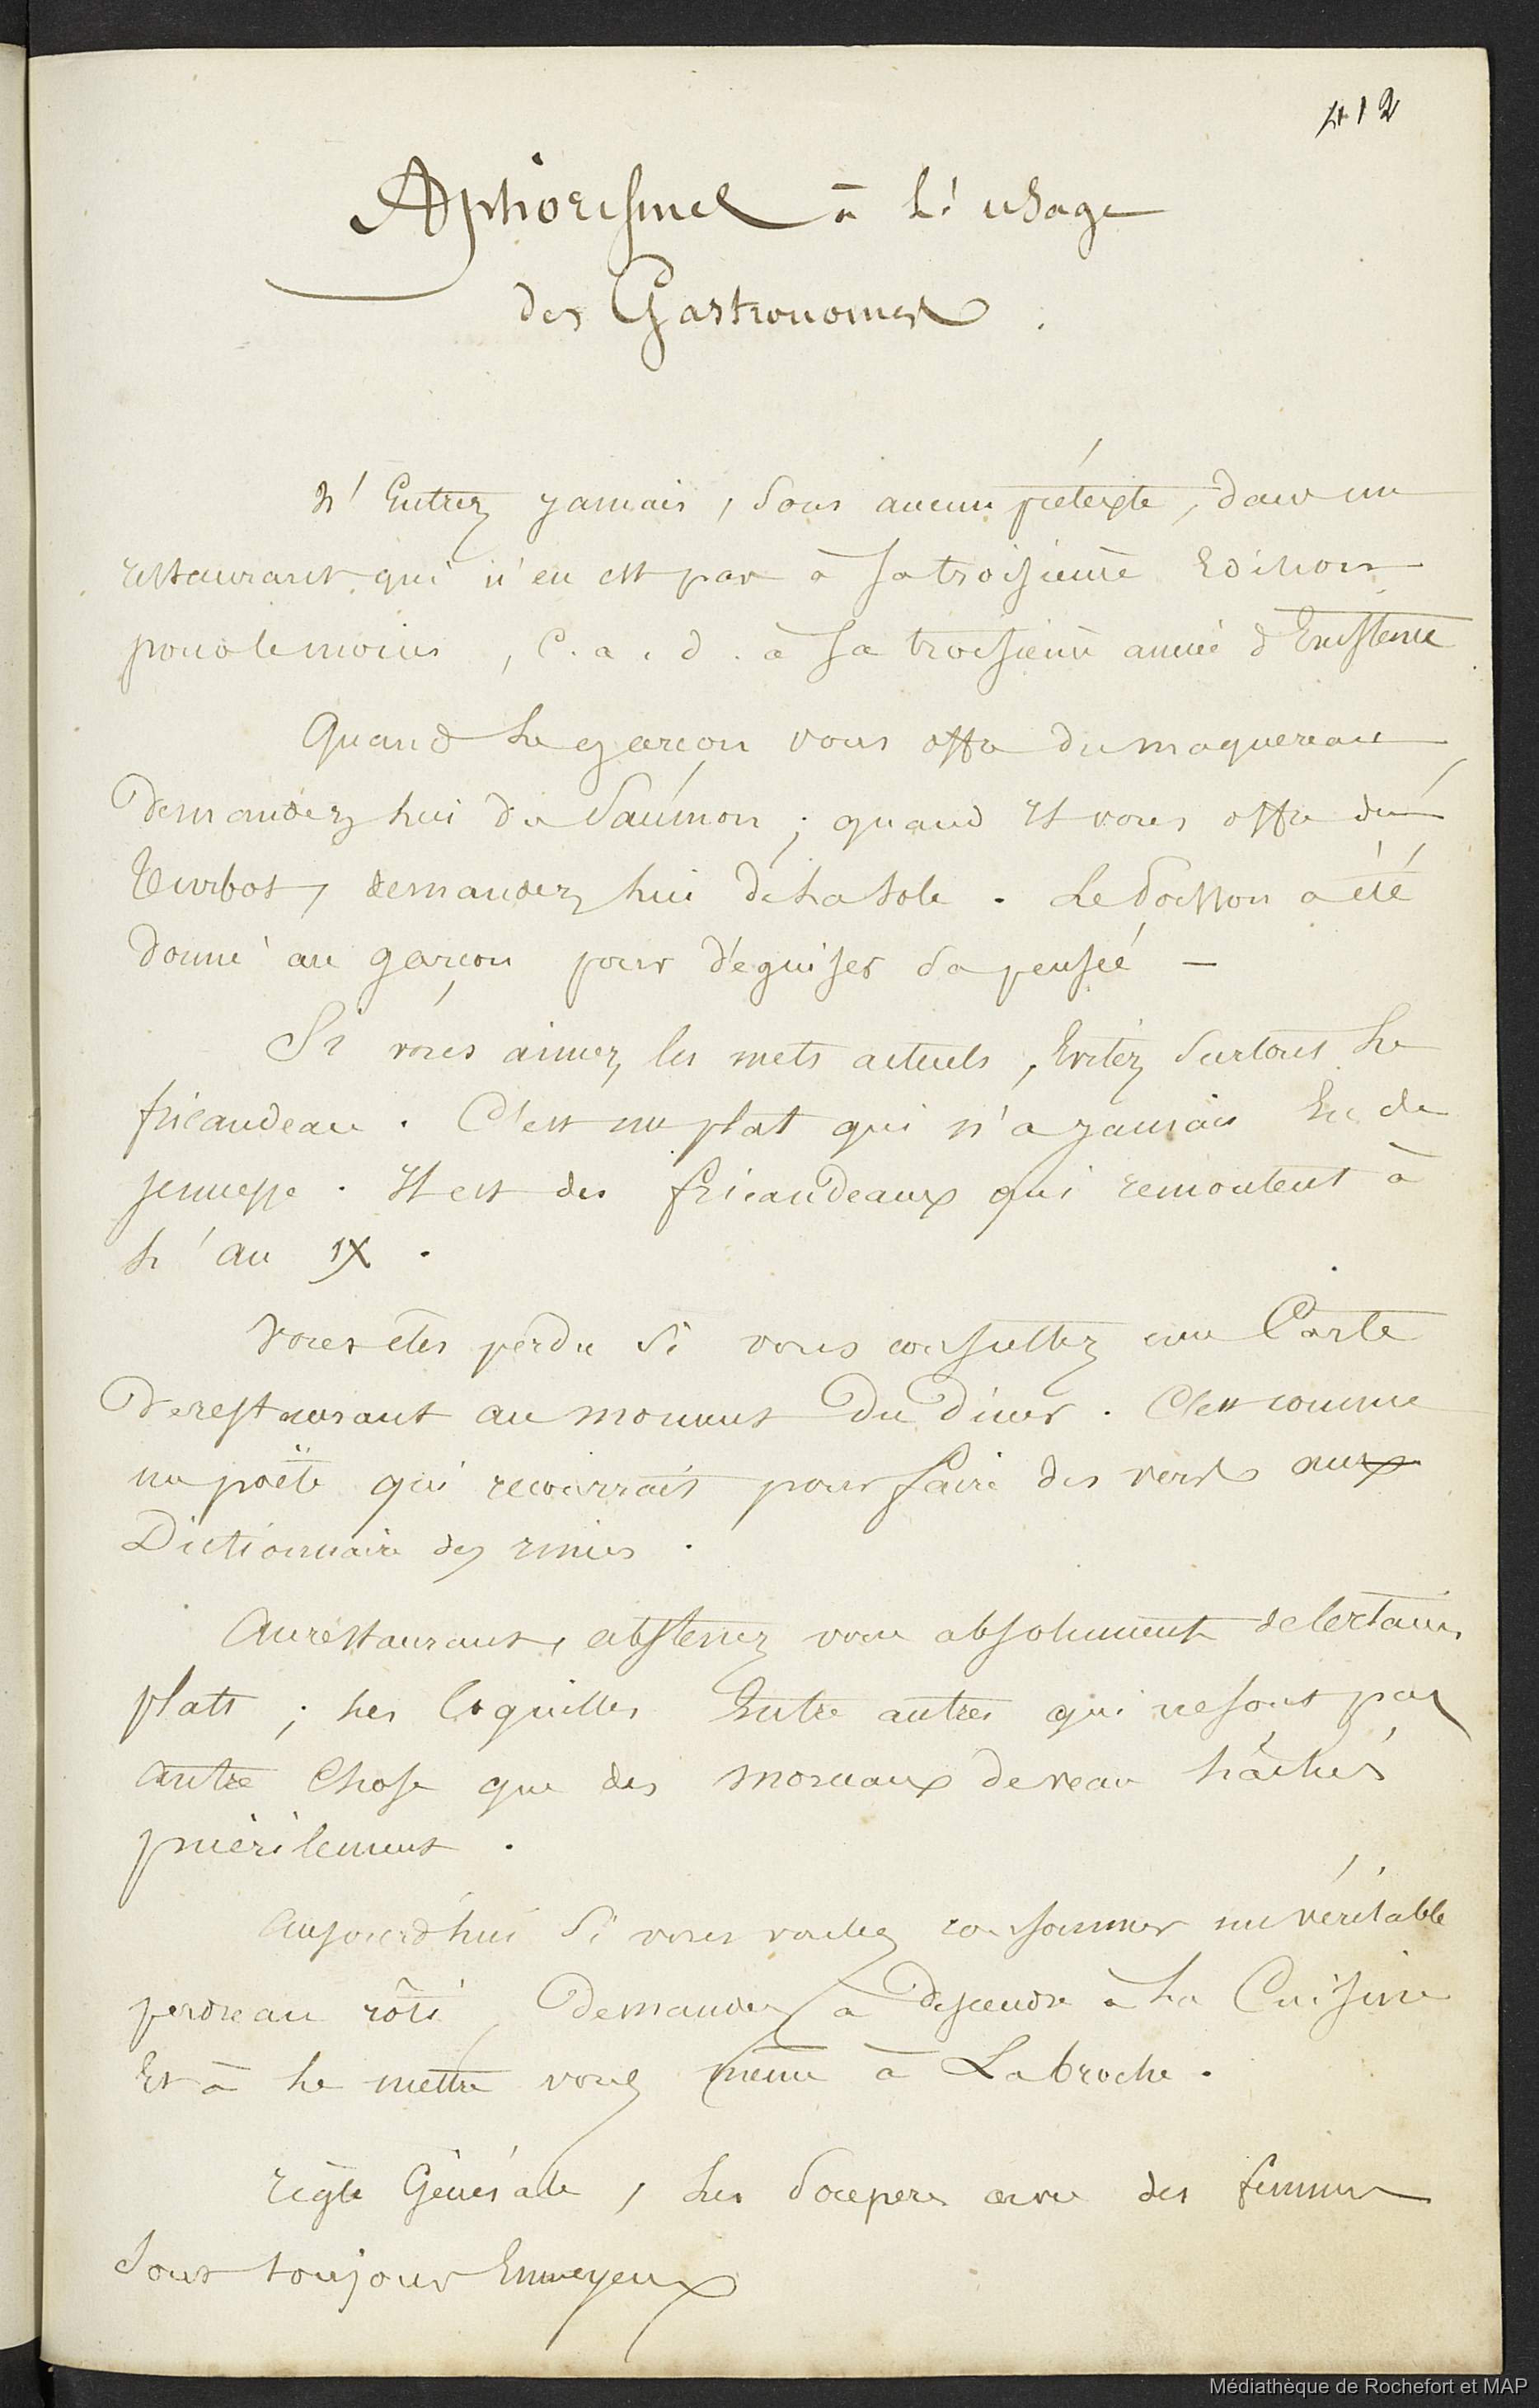 412
Aphorismes à l'usage
des Gastronomes.
N'Entrez jamais, sous aucun prétexte, dans un
restaurant qui n'en est pas à sa troisième Edition
pour le moins, c.a.d. à sa troisième année d'Existence
Quand le garçon vous offre du maquereau
Demandez lui du Saumon; quand il vous offre du
Turbot, demandez lui de la sole. Le Poisson a été
donné au garçon pour déguiser sa pensée —
Si vous aimez les mets actuels, Evitez surtout le
fricandeau. C'est un plat qui n'a jamais Eu de
jeunesse. Il est des fricandeaux qui remontent à
l'an IX.
Vous êtes perdu si vous consultez une Carte
De restaurant au moment du diner. C'est comme
un poëte qui recourrait pour faire des vers aux
Dictionnaire des rimes.
Au restaurant, abstenez vous absolument de Certains
plats; les Coquilles Entre autres qui ne sont pas
autre Chose que des morceaux de veau hâchés
puérilement.
Aujourd'hui si vous voulez consommer un véritable
perdreau rôti, Demandez à descendre à la Cuisine
Et à le mettre vous même à La broche.
règle Générale, les soupers avec des femmes
sont toujours Ennuyeux
Médiathèque de Rochefort et MAP